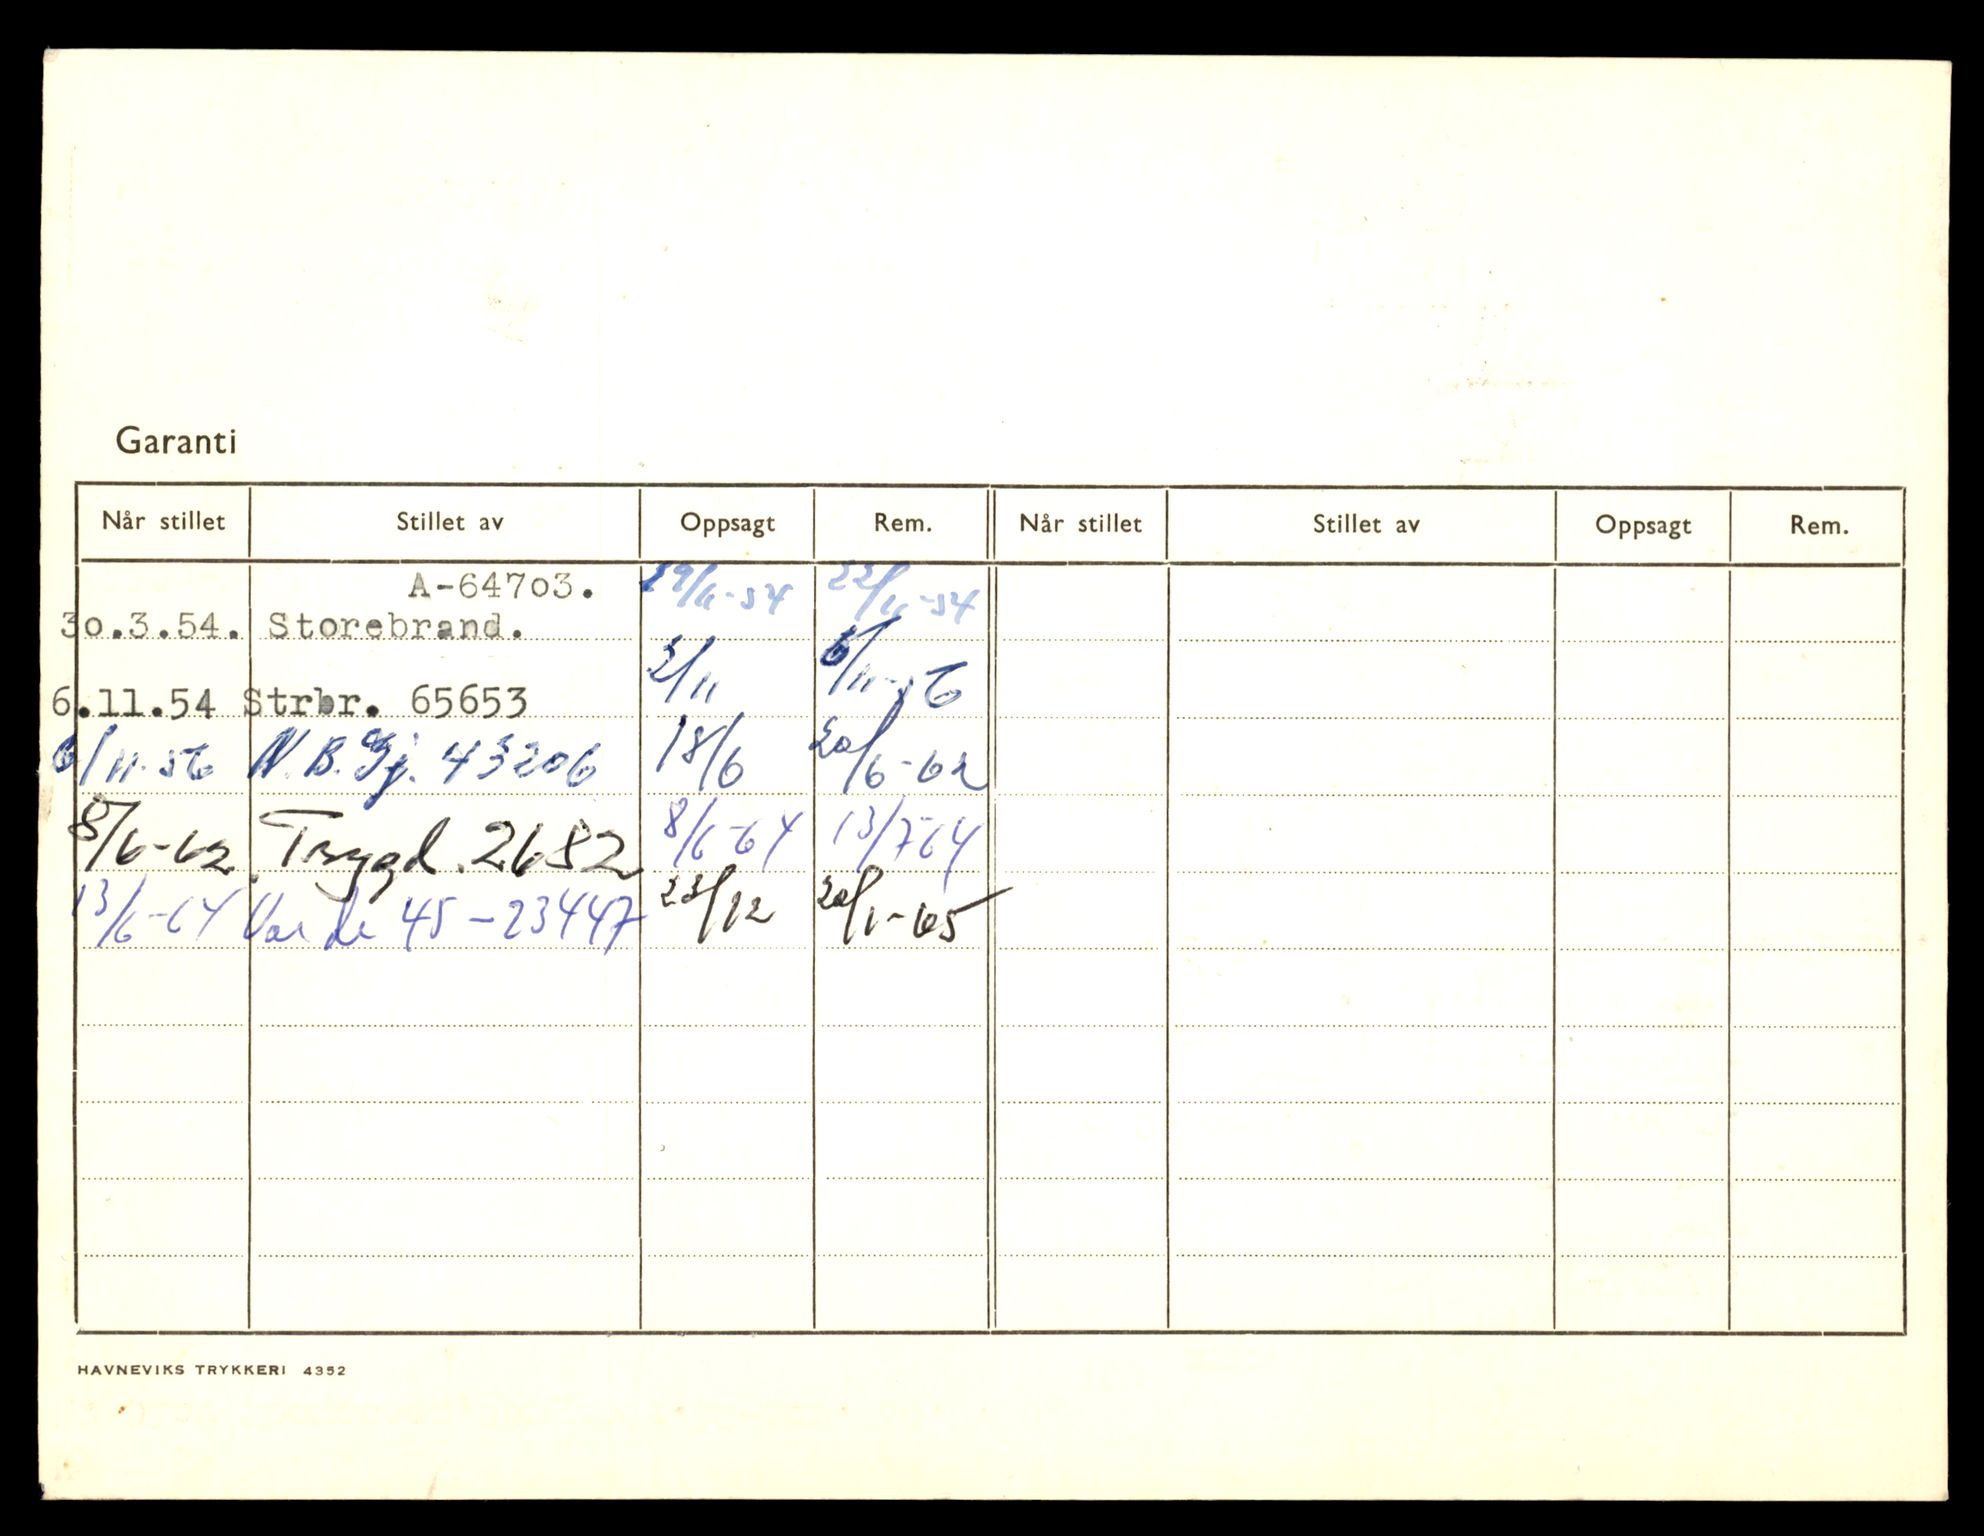 Garanti
Når stillet Stillet av Oppsagt Rem. Når stillet Stillet av Oppsagt Rem.
A-64703. 19/11-54 22/11-54
30.3.54. Storebrand.
6.11.54 Strbr. 65653 3/11 6/11-56
6/11-56 N.B.Gj. 43206 18/6 20/6-62
8/6-62 Trygd. 2682 8/6-64 13/7-64
13/6-64 Varde 45-23447 23/12 20/1-65
HAVNEVIKS TRYKKERI 4352